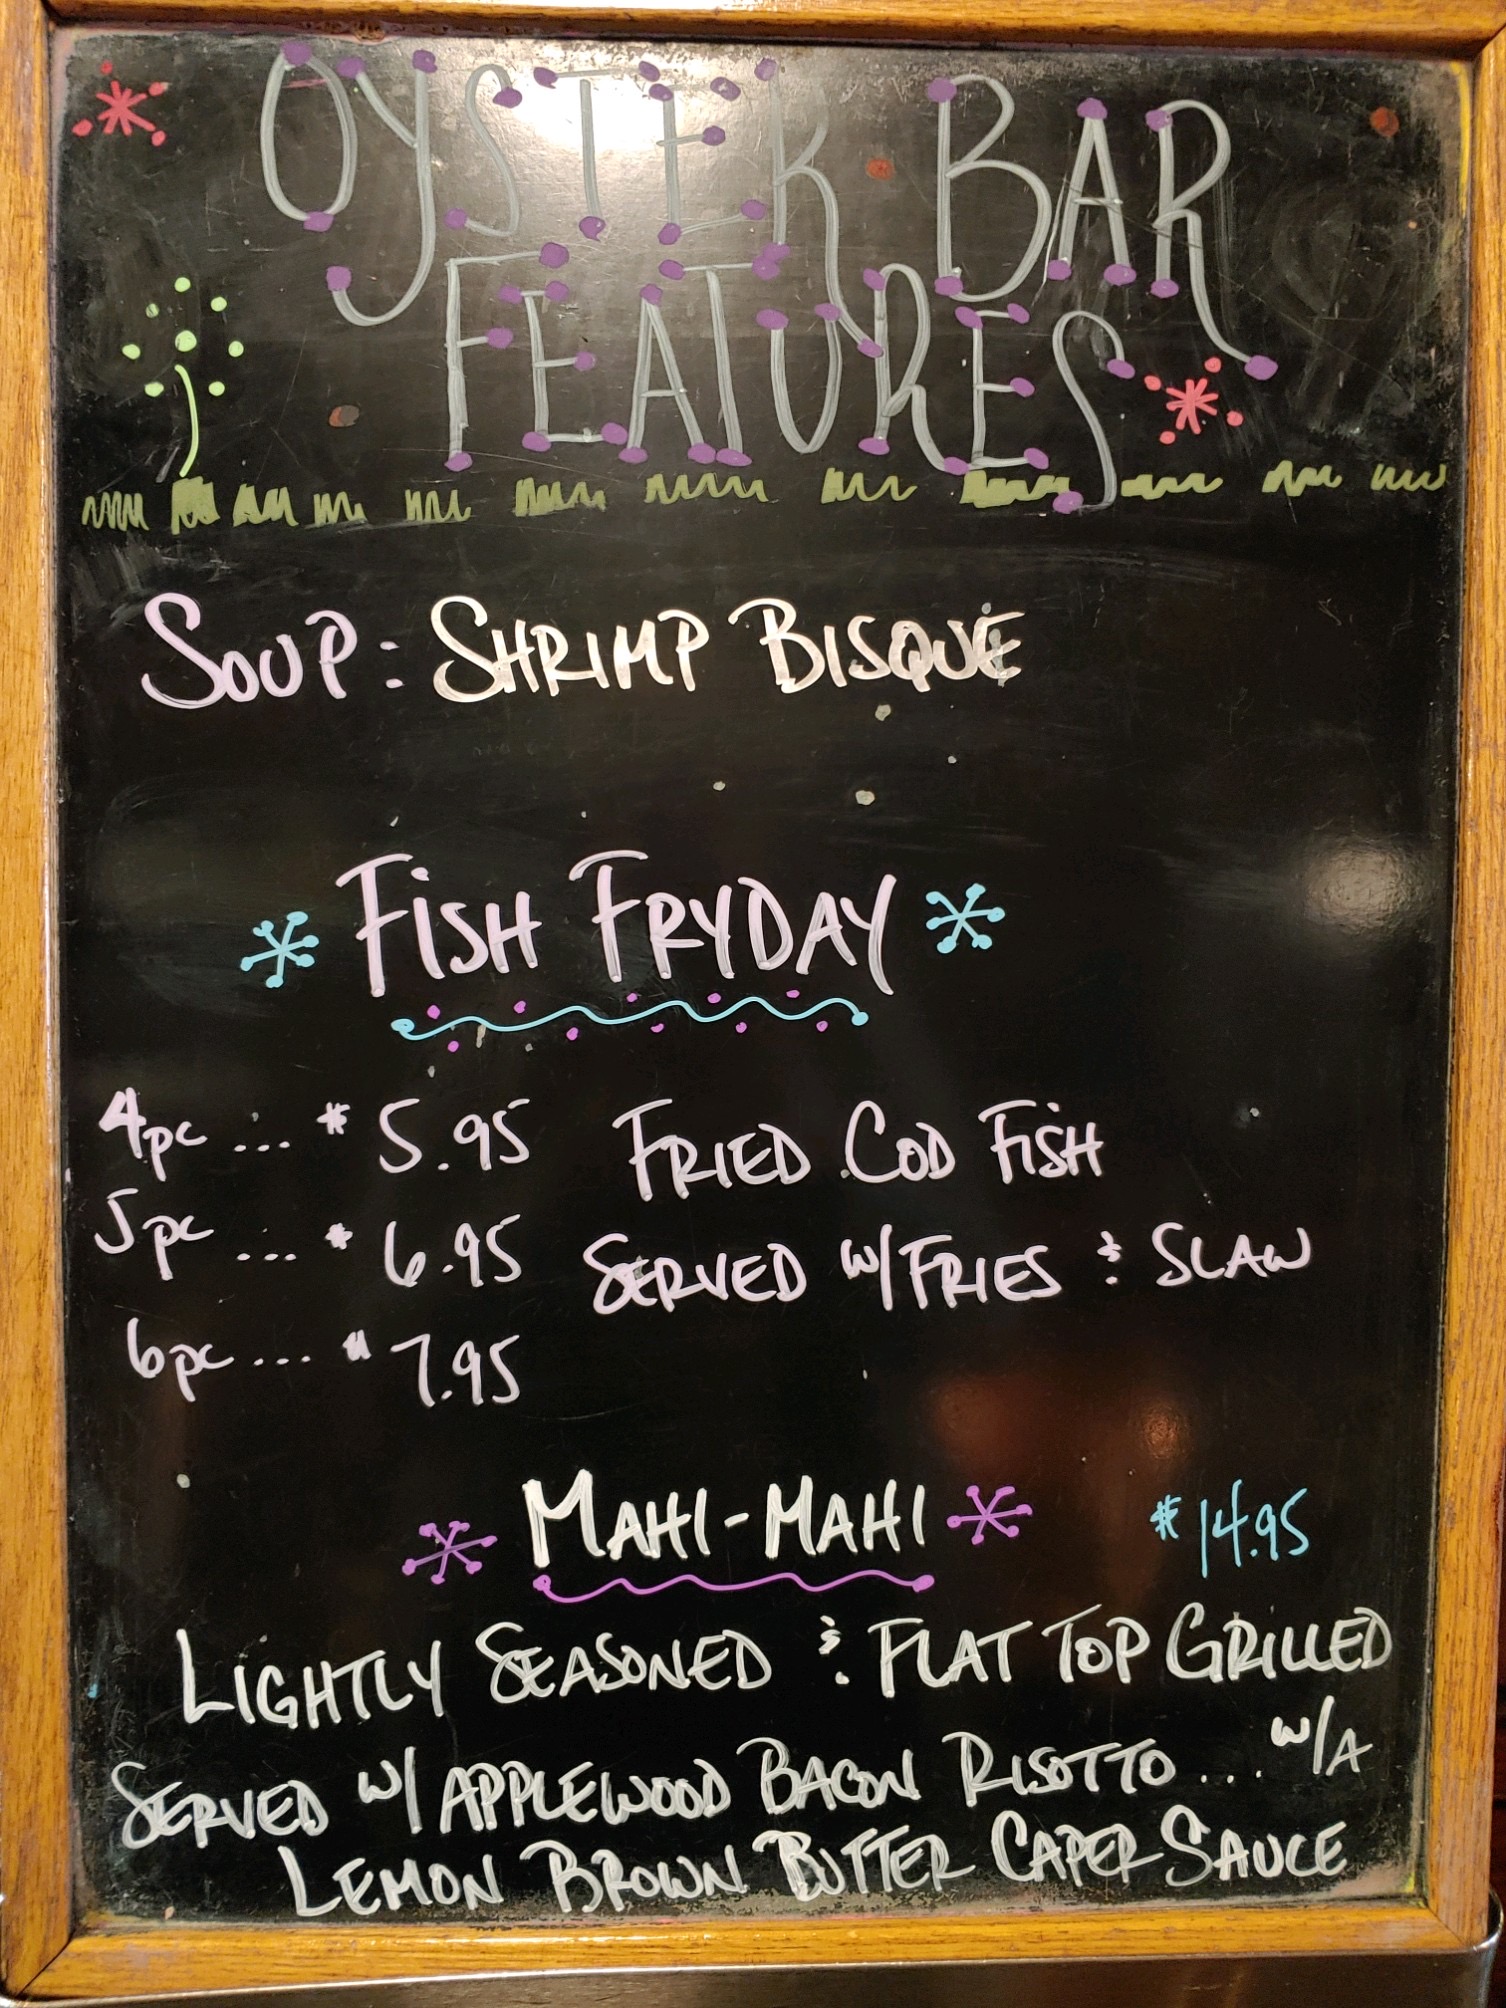 OYSTER BAR
FEATURES
SOUP: SHRIMP BISQUE
FISH FRYDAY
4pc ... $5.95 FRIED COD FISH
5pc ... $6.95 SERVED W/FRIES & SLAW
6pc ... $7.95
MAHI-MAHI $14.95
LIGHTLY SEASONED & FLAT TOP GRILLED
SERVED W/ APPLEWOOD BACON RISOTTO... W/A
LEMON BROWN BUTTER CAPER SAUCE